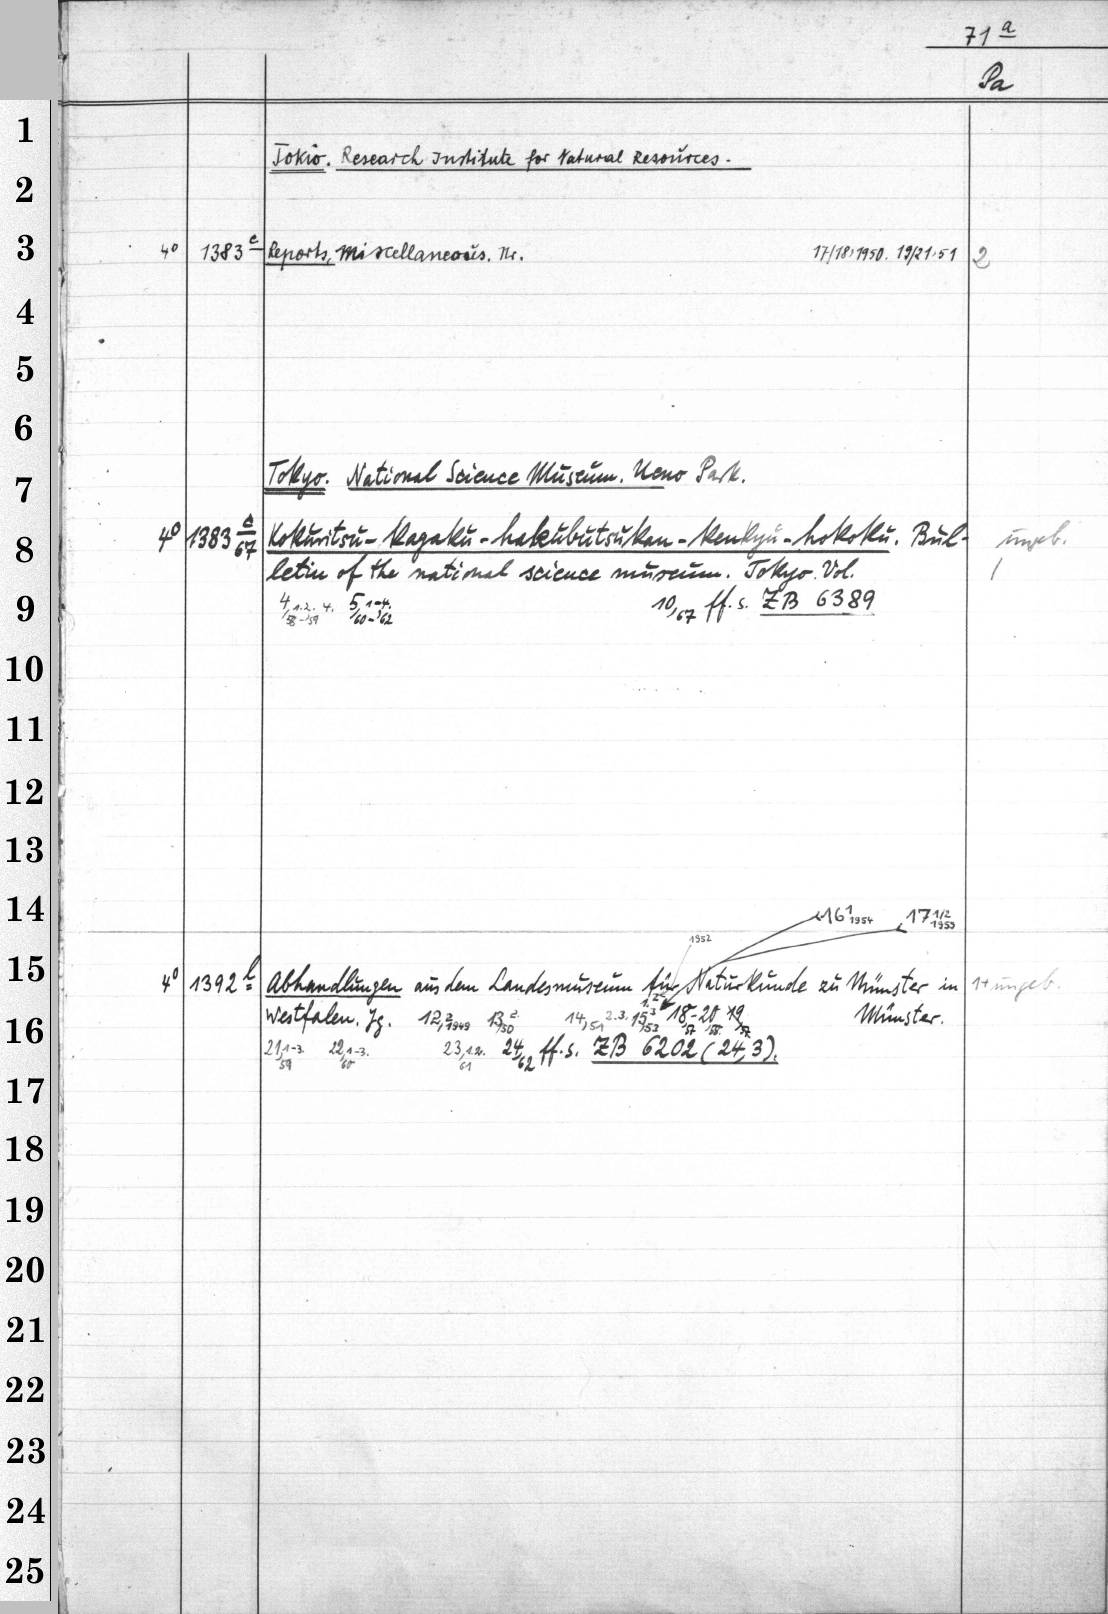 71a
Pa
1
Tokio. Research Institute for Natural Resources.
2
3
4° 1383c Reports, Miscellaneous. Nr. 17/18,1950. 19/21,51 2
4
5
6
Tokyo. National Science Museum. Ueno Park.
7
4° 1383c/67 Kokuritsu-Kagaku-hakubutsukan-Kenkyu-hokoku. Bul- ungeb.
8
letin of the national science museum. Tokyo. Vol. 1
4,1.2. 4. 58-59 5,1-4. 60-62 10,67 ff. s. ZB 6389
9
10
11
12
13
14
16 1 1954 17 1/2 1959
1952
15
4° 1392l Abhandlungen aus dem Landesmuseum für Naturkunde zu Münster in 1+ungeb.
Westfalen. Jg. 12,2 1949 13 2. 50 14,51 2.3. 15 3 53 18-20 19 57 Münster.
16
21,1-3. 59 22,1-3. 60 23,1.2. 61 24,62 ff. s. ZB 6202 (24,3).
17
18
19
20
21
22
23
24
25